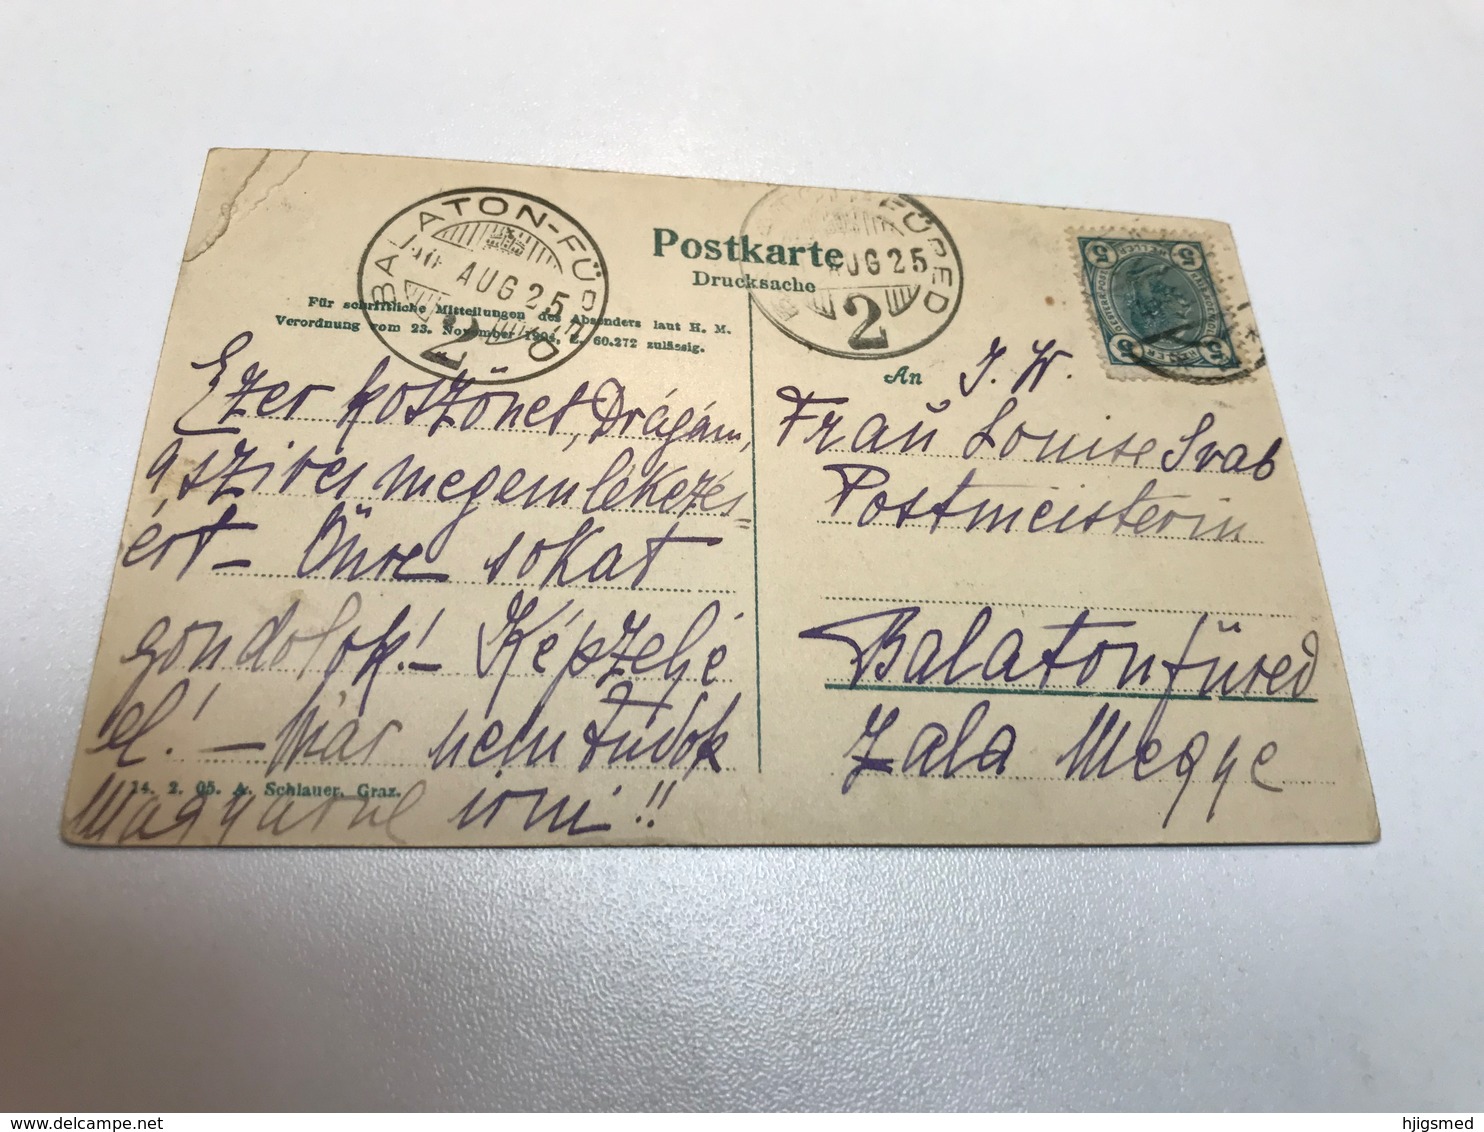 BALATON-FÜRED
AUG 25
2
Postkarte
Drucksache
FÜRED
AUG 25
2
Für schriftliche Mitteilungen des Absenders laut H. M.
Verordnung vom 23. November 1904, Z. 60.272 zulässig.
5 5
HELLER
5 5
An
I. W.
Fraŭ Louise Svab
Postmeisterin
Balatonfüred
Zala Megye
Ezer köszönet, Drágám,
a szives megemlékezés=
ért – Önre sokat
gondolok! – Képzelje
el! – Már nem tudok
Magyarul irni!!
14. 2. 05. A. Schlauer, Graz.
hjigsmed